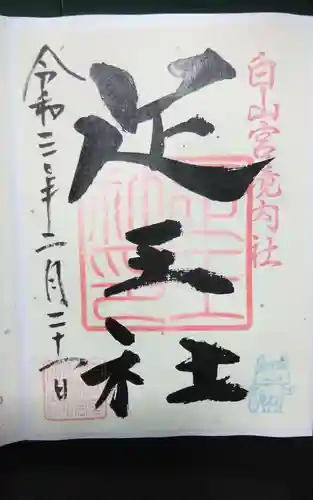 白山宮境内社
足王社
令和三年二月二十一日